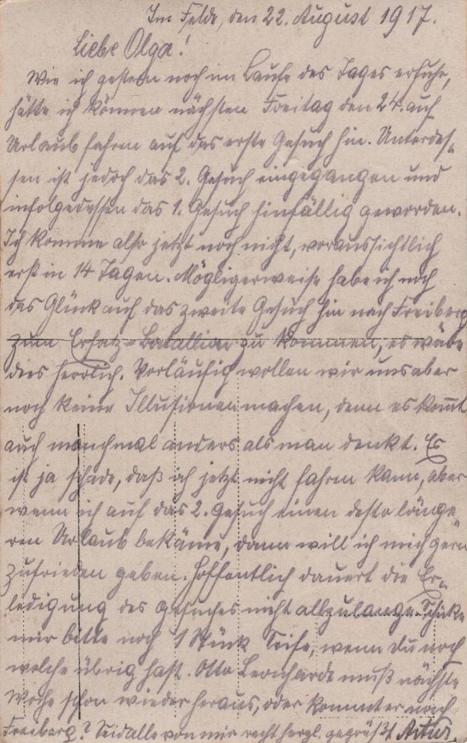 Im Felde, den 22. August 1917.
Liebe Olga!
Wie ich gestern noch im Laufe des Tages erfuhr,
hätte ich können nächsten Freitag den 24. auf
Urlaub fahren auf das erste Gesuch hin. Unterdes-
sen ist jedoch das 2. Gesuch eingegangen und
infolgedessen das 1. Gesuch hinfällig geworden.
Ich komme also jetzt noch nicht, voraussichtlich
erst in 14 Tagen. Mögligerweise habe ich noch
das Glück auf das zweite Gesuch hin nach Freiberg
zum Ersatz-Batallion zu kommen, es wäre
dies herrlich. Vorläufig wollen wir uns aber
noch keine Illusionen machen, denn es kom̄t
auch manchmal anders als man denkt. Es
ist ja schade, daß ich jetzt nicht fahren kann, aber
wenn ich auf das 2. Gesuch einen desto länge
ren Urlaub bekäme, dann will ich mich gern
zufrieden geben. Hoffentlich dauert die Er-
ledigung des Gesuches nicht allzulange. Schicke
mir bitte noch 1 Stück Seife, wenn du noch
welche übrig hast. Otto Leonhardt muß nächste
Woche schon wieder heraus, oder kommt er nach
Freiberg? Seid alle von mir recht herzl. gegrüßt Artur.